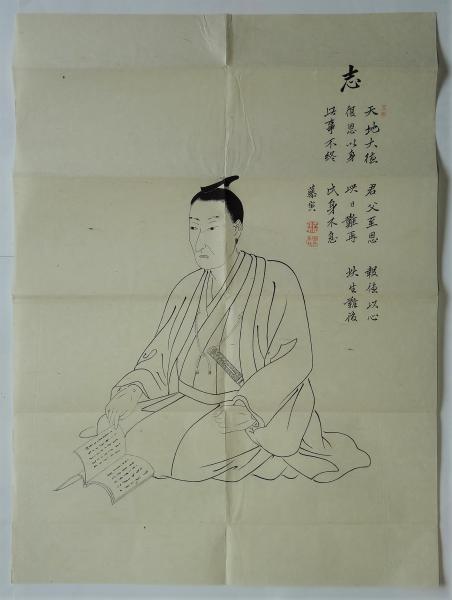 志
天地大徳 君父至恩 報徳以心
復恩以身 此日難再 此生難復
此事不終 此身不息
藤寅